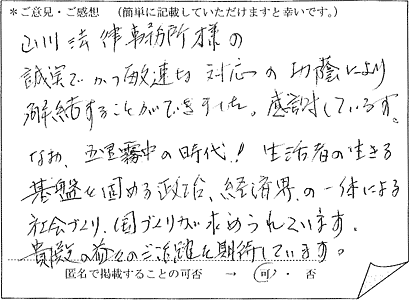 ＊ご意見・ご感想　（簡単に記載していただけますと幸いです。）
山川法律事務所様の
誠実でかつ敏速な対応のお蔭により
解結することができました。感謝しています。
なお、五里霧中の時代！生活者の生きる
基盤を固める政治、経済界の一体による
社会づくり、国づくりが求められています。
貴殿の益々のご活躍を期待しています。
匿名で掲載することの可否　→　可・否